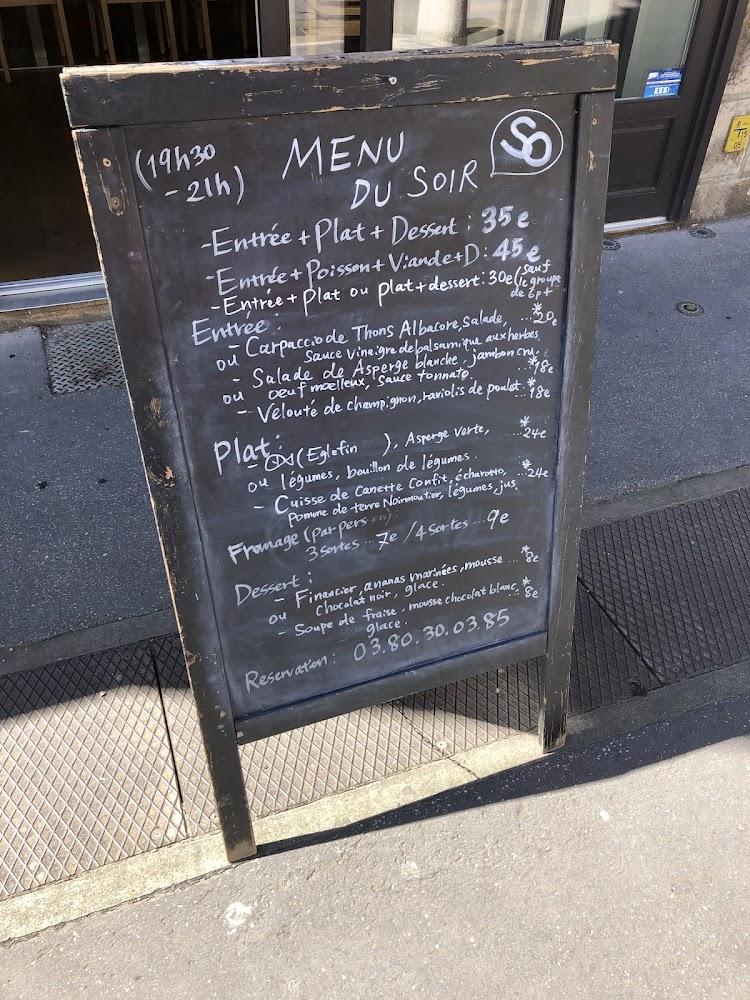 (19h30
- 21h)
MENU
DU SOIR
SO
- Entrée + Plat + Dessert : 35e
- Entrée + Poisson + Viande + D : 45e
- Entrée + Plat ou plat + dessert : 30e (sauf
le groupe
de 6p+
Entrée :
- Carpaccio de Thons Albacore, Salade, ...*20e
ou Sauce Vinaigre de balsamique aux herbes
- Salade de Asperge blanche, jambon cru, ...*18e
ou oeuf moelleux, sauce tonnato.
- Velouté de champignon, raviolis de poulet. ...*18e
Plat :
- (Eglefin ), Asperge verte, ...*24e
ou légumes, bouillon de légumes.
- Cuisse de canette confit, écharotte, ...*24e
Pomme de terre Noirmoutier, légumes, jus.
Fromage (par pers on)
3 sortes ... 7e / 4 sortes ... 9e
Dessert :
- Financier, ananas marinées, mousse ...*8e
ou Chocolat noir, glace.
- Soupe de fraise, mousse chocolat blanc, *8e
glace.
Reservation : 03.80.30.03.85